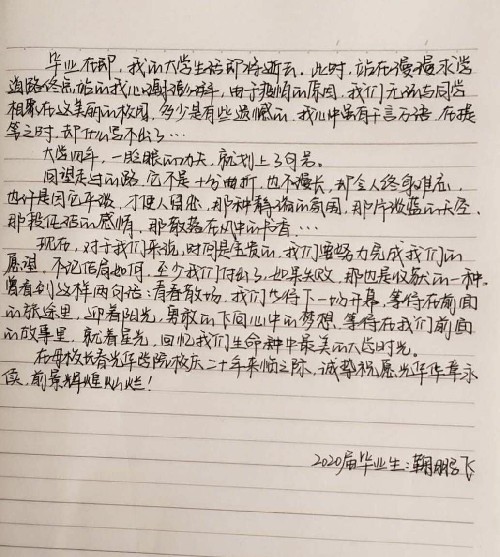 毕业在即,我的大学生活即将逝去。此时,站在漫漫求学
道路终点站的我心潮澎湃,由于疫情的原因,我们无法与同学
相聚在这美丽的校园,多少是有些遗憾的,我心中虽有千言万语,在提
笔之时,却什么写不出了…
大学四年,一眨眼的功夫,就划上了句号。
回望走过的路,它不是十分曲折,也不漫长,却令人终身难忘,
也许是因它平淡,才使人留恋,那种静谧的氛围,那片微蓝的天空,
那段征程的感情,那散落在风中的片香…
现在,对于我们来说,时间是宝贵的,我们要努力完成我们的
愿望,不论结局如何,至少我们付出了,如果失败,那也是收获的一种。
曾看到这样两句话:青春散场,我们等待下一场开幕,等待在前面
的旅途里,迎着阳光,勇敢的飞向心中的梦想,等待在我们前面
的故事里,就着星光,回忆我们生命中最美的大学时光。
在母校长春光华学院校庆二十年来临之际,诚挚祝愿光华华章永
续,前景辉煌灿烂!
2020届毕业生:鞠鹏飞